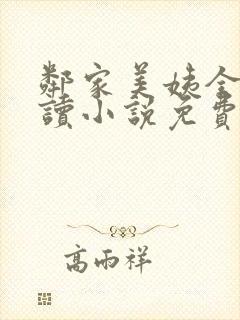 鄰家美姨全
讀小說免費
高雨祥